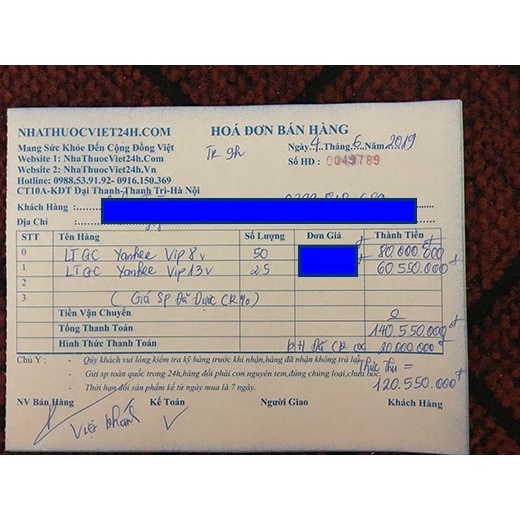 NHATHUOCVIET24H.COM
HOÁ ĐƠN BÁN HÀNG
Mang Sức Khỏe Đến Cộng Đồng Việt
Website 1: NhaThuocViet24h.Com
Website 2: NhaThuocViet24h.Vn
Hotline: 0988.53.91.92- 0916.150.369
CT10A-KĐT Đại Thanh-Thanh Trì-Hà Nội
Tr 9h
Ngày 4 Tháng 6 Năm 2019
Số HĐ : 0049789
Khách Hàng :
Địa Chỉ :
STT Tên Hàng Số Lượng Đơn Giá Thành Tiền
0 LTGC Yankee Vip 8v 50 80.000.000
1 LTGC Yankee Vip 13v 25 60.550.000đ
2
3 (Giá SP Đã Được CK %)
Tiền Vận Chuyển 0
Tổng Thanh Toán 140.550.000đ
Hình Thức Thanh Toán KH Đã CK cọc 20.000.000
Chú Ý : - Qúy khách vui lòng kiểm tra kỹ hàng trước khi nhận,hàng đã nhận không trả lại
- Gửi sp toàn quốc trong 24h, hàng đổi phải con nguyên tem,đúng chủng loại,chưa bóc
- Thời hạn đổi sản phẩm kể từ ngày mua là 7 ngày.
Thực Thu =
120.550.000đ
NV Bán Hàng Kế Toán Người Giao Khách Hàng
Việt Khánh